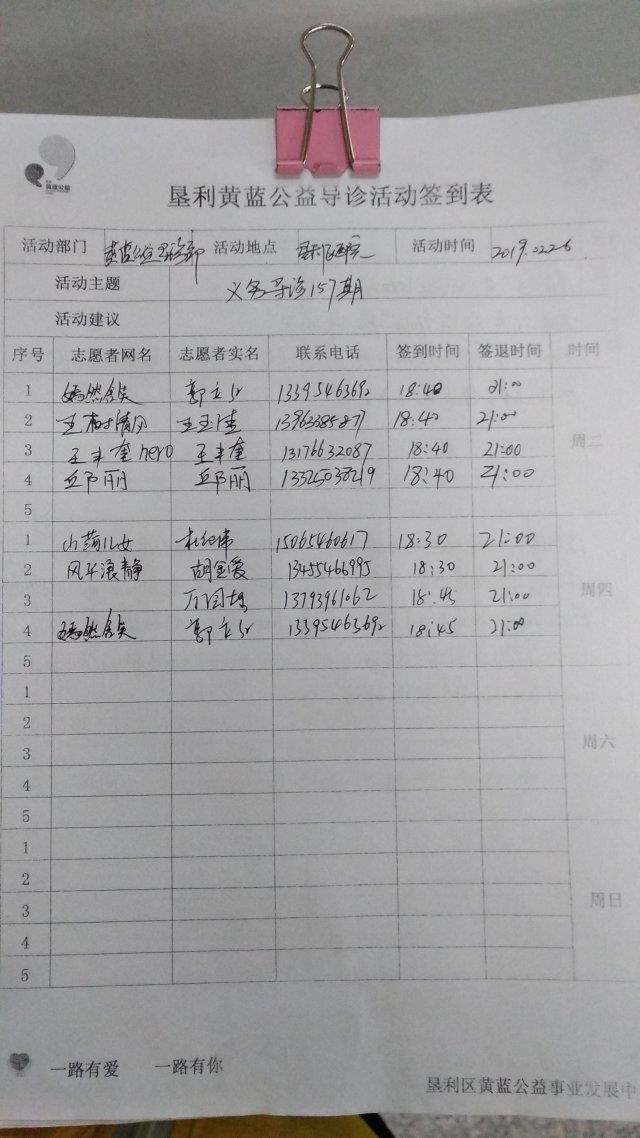 黄蓝公益
垦利黄蓝公益导诊活动签到表
活动部门 黄蓝公益导诊部 活动地点 活动时间 2019.0226
活动主题 义务导诊157期
活动建议
序号 志愿者网名 志愿者实名 联系电话 签到时间 签退时间 时间
1 嫣然含笑 郭立 13395463692 18:40 21:00
2 清风 13963385877 18:40 21:00
周二
3 王丰奎hero 王丰奎 13176632087 18:40 21:00
4 邱丽 邱丽 13325038219 18:40 21:00
5
1 儿女 15065460617 18:30 21:00
2 风平浪静 胡金爱 13455466995 18:30 21:00
3 13793961062 18:45 21:00
周四
4 嫣然含笑 郭立 13395463692 18:45 21:00
5
1
2
3
周六
4
5
1
2
3
周日
4
5
一路有爱 一路有你
垦利区黄蓝公益事业发展中